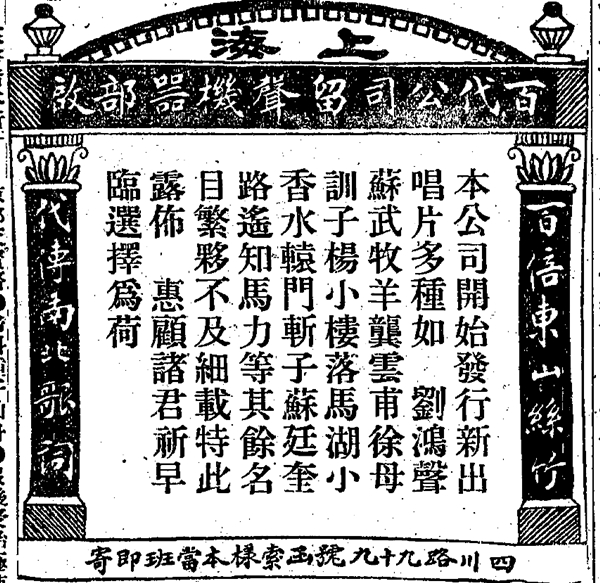 上海
百代公司留聲機器部啟
百倍東山絲竹
本公司開始發行新出
唱片多種如　劉鴻聲
蘇武牧羊龔雲甫徐母
訓子楊小樓落馬湖小
香水轅門斬子蘇廷奎
路遙知馬力等其餘名
目繁夥不及細載特此
露佈　惠顧諸君祈早
臨選擇爲荷
代傳南北歌詞
四川路九十九號函索樣本當班即寄